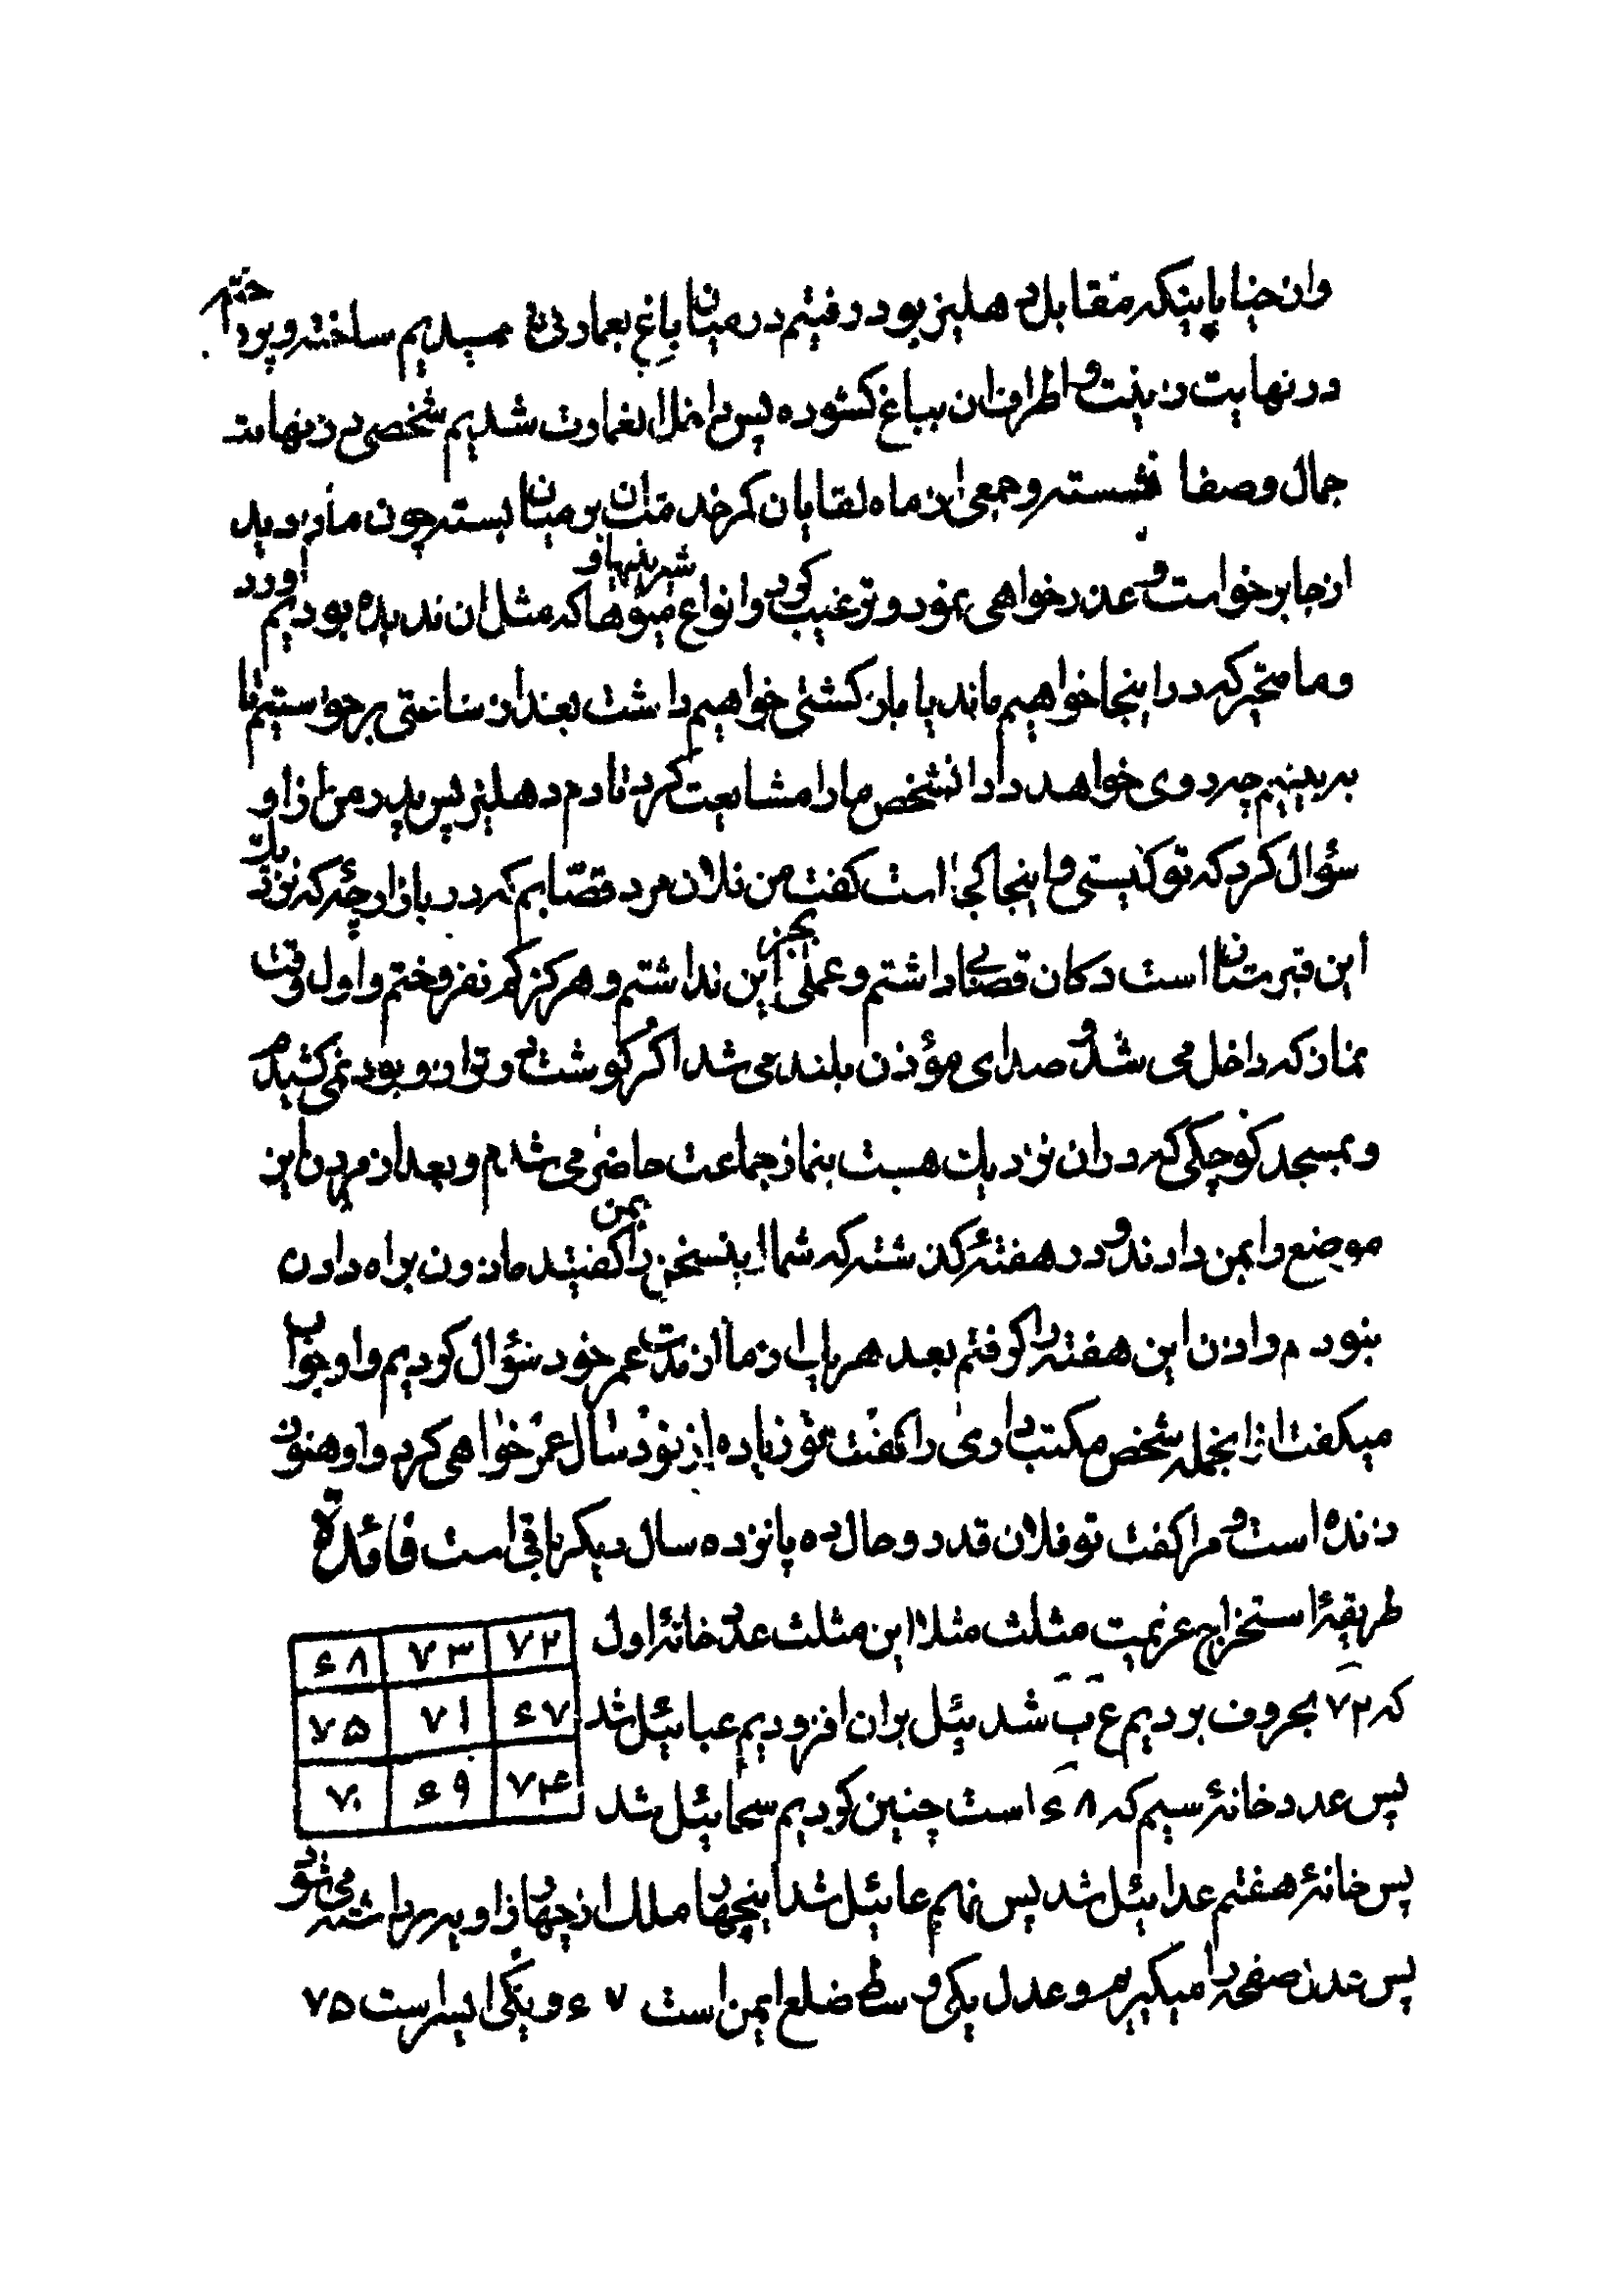 وان خیابانیکه مقابل دهلیز بود رفتیم در میان باغ بعمارتی رسیدیم ساخته و پرداخته
در نهایت زینت و اطراف ان بباغ کشوده پس داخل انعمارت شدیم شخصی در نهایت
جمال و صفا نشسته و جمعی از ماه لقایان کمر خدمتان بر میان بسته چون ما را دید
از جا برخواست و عذر خواهی نمود و ترغیب کرد و انواع شیرینیها و میوها که مثل ان ندیده بودیم اورد
و ما متحیر که در اینجا خواهیم ماند یا بازکشتی خواهیم داشت بعد از ساعتی برخواستیم تا
به بینیم چه روی خواهد داد انشخص ما را مشایعت کرد تا دم دهلیز پس پدر من از او
سؤال کرد که تو کیستی و اینجا کجا است کفت من فلان مرد قصابم که در بازارچۀ که نزدیک
این قبرستان است دکان قصابی داشتم و عملی بجز این نداشتم و هرکز کم نفروختم و اول وقت
نماز که داخل می شد و صدای مؤذن بلند می شد اکر کوشت در ترازو بود نمی کشیدم
و بمسجد کوچکی که در ان نزدیک هست بنماز جماعت حاضر می شدم و بعد از مردن این
موضع را بمن دادند و در هفتۀ کذشته که شما اینسخن را بمن کفتید ماذون براه دادن
نبودم و اذن این هفته را کرفتم بعد هر یک از ما از مدت عمر خود سؤال کردیم و او جواب
میکفت از انجمله شخص مکتب داری را کفت تو زیاده از نود سال عمر خواهی کرد و او هنوز
زنده است و مرا کفت تو فلان قدر و حال ده پانزده سال دیکر باقی است فائدة
طریقۀ استخراج عزیمت مثلث مثلا این مثلث عدد خانۀ اول
۷۲ ۷۳ ۶۸
که ۷۲ بحروف بردیم ع ب شد ئیل بران افزودیم عبائیل شد
۶۷ ۷۱ ۷۵
پس عدد خانۀ سیم که ۶۸ است چنین کردیم سحائیل شد
۷۴ ۶۹ ۷۰
پس خانۀ هفتم عدائیل شد پس نهم عائیل شد اینچهار ملک از چهار زاویه برداشته می شود
پس عدد صفحه را میکیریم و عدل یکی و سط ضلع ایمن است ۶۷ و یکی ایسر است ۷۵